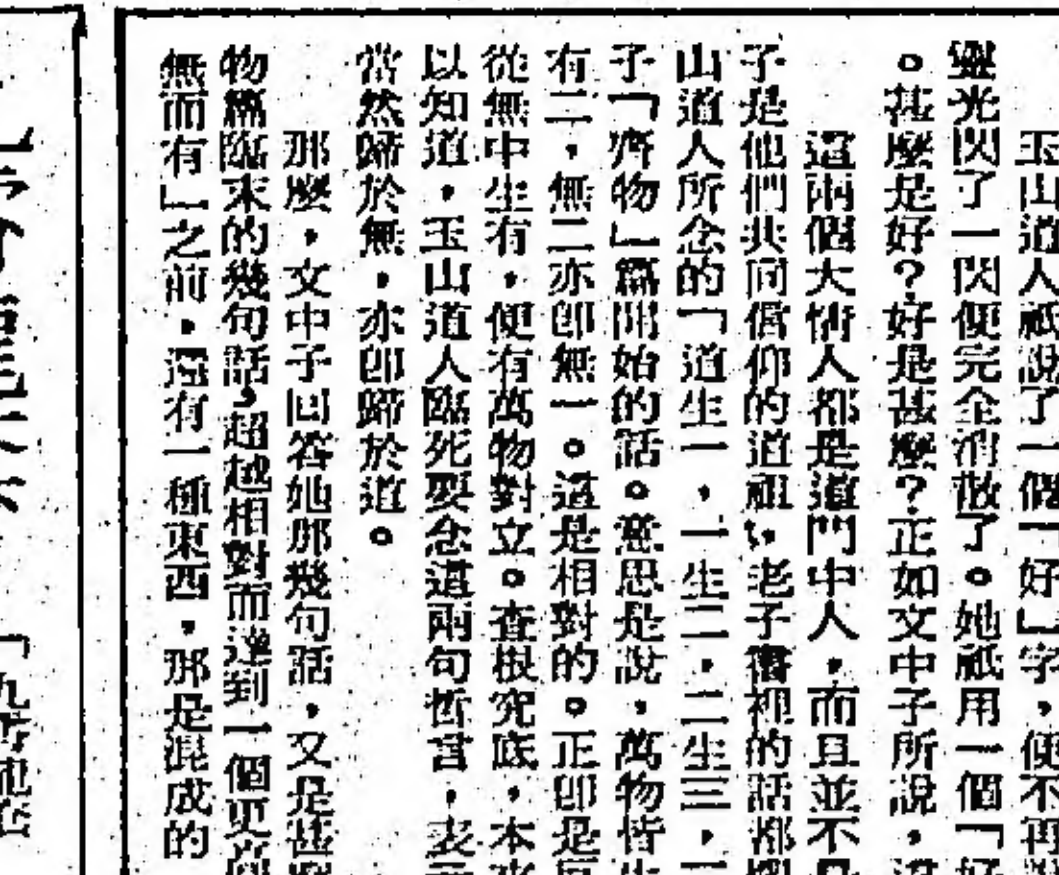 玉山道人祇說了一個「好」字，便不再
靈光閃了一閃便完全消散了。她祇用一個「好
。甚麼是好？好是甚麼？正如文中子所說，
這兩個大情人都是道門中人，而且並不
子是他們共同信仰的道祖，老子書裡的話都
山道人所念的「道生一，一生二，二生三，
子「齊物」篇開始的話。意思是說，萬物皆
有二，無二亦卽無一。這是相對的。正卽是
從無中生有，便有萬物對立。查根究底，本來
以知道，玉山道人臨死要念這兩句哲言，表
當然歸於無，亦卽歸於道。
那麼，文中子回答她那幾句話，又是甚
物篇臨末的幾句話，超越相對而達到一個更高
無而有」之前，還有一種東西，那是混成的